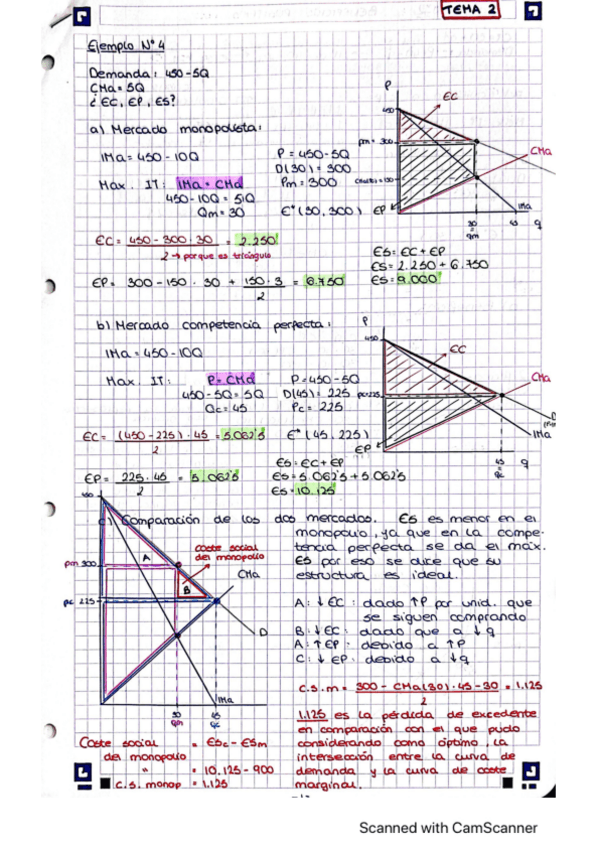 TEMA 2
Ejemplo Nº4
Demanda: 450-5Q
CMa = 5Q
¿EC, EP, ES?
a) Mercado monopolista:
IMa = 450-10Q
P = 450-5Q
Max. IT: IMa = CMa
D(30) = 300
450-10Q = 5Q
Pm = 300
Qm = 30
E*(30,300)
P
450
EC
pm = 300
CMa
EP
30
=
qm
45
IMa
q
EC = 450-300·30 = 2.250
2 → porque es triángulo
EP = 300-150·30 + 150·3 = 6.750
2
ES = EC + EP
ES = 2.250 + 6.750
ES = 9.000
b) Mercado competencia perfecta:
IMa = 450-10Q
Max. IT: P = CMa
P = 450-5Q
450-5Q = 5Q
D(45) = 225
Qc = 45
Pc = 225
P
450
EC
CMa
pc=225
D
IMa
EP
45
=
qc
q
EC = (450-225)·45 = 5.062'5
2
E*(45,225)
EP = 225·45 = 5.062'5
2
ES = EC + EP
ES = 5.062'5 + 5.062'5
ES = 10.125
c) Comparación de los dos mercados.
ES es menor en el
monopolio, ya que en la compe-
tencia perfecta se da el máx.
ES por eso se dice que su
estructura es ideal.
450
A
Coste social
del monopolio
pm 300
CMa
B
pc 225
D
IMa
30
qm
45
qc
A: ↓EC: dado ↑P por unid. que
se siguen comprando
B: ↓EC: dado que a ↓q
A: ↑EP: debido a ↑P
C: ↓EP: debido a ↓q
C.S.m = 300 - CMa(30)·45-30 = 1.125
2
1.125 es la pérdida de excedente
en comparación con el que pudo
considerando como óptimo, la
intersección entre la curva de
demanda y la curva de coste
marginal.
Coste social = ESc - ESm
del monopolio
" = 10.125 - 900
C.S. monop = 1.125
Scanned with CamScanner